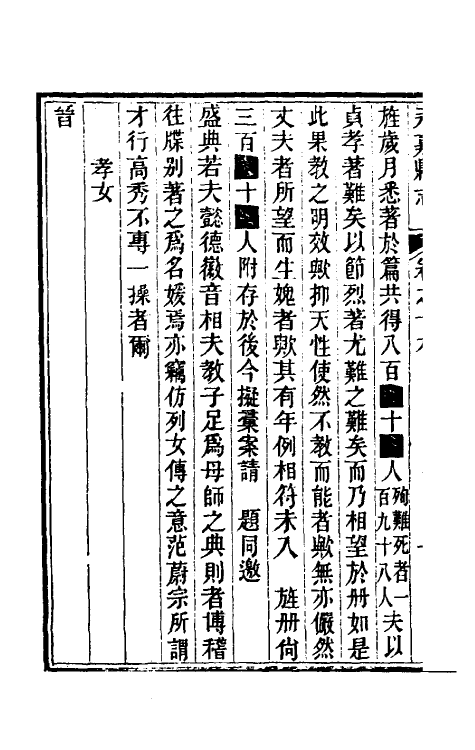 旌歲月悉著於篇共得八百十人殉難死者一百九十八人夫以
貞孝著難矣以節烈著尤難之難矣而乃相望於册如是
此果教之明效歟抑天性使然不教而能者歟無亦儼然
丈夫者所望而生媿者歟其有年例相符未入 旌册尙
三百十人附存於後今擬彙案請 題同邀
盛典若夫懿德徽音相夫教子足爲母師之典則者博稽
往牒别著之爲名媛焉亦竊仿列女傳之意范蔚宗所謂
才行高秀不專一操者爾
孝女
晉